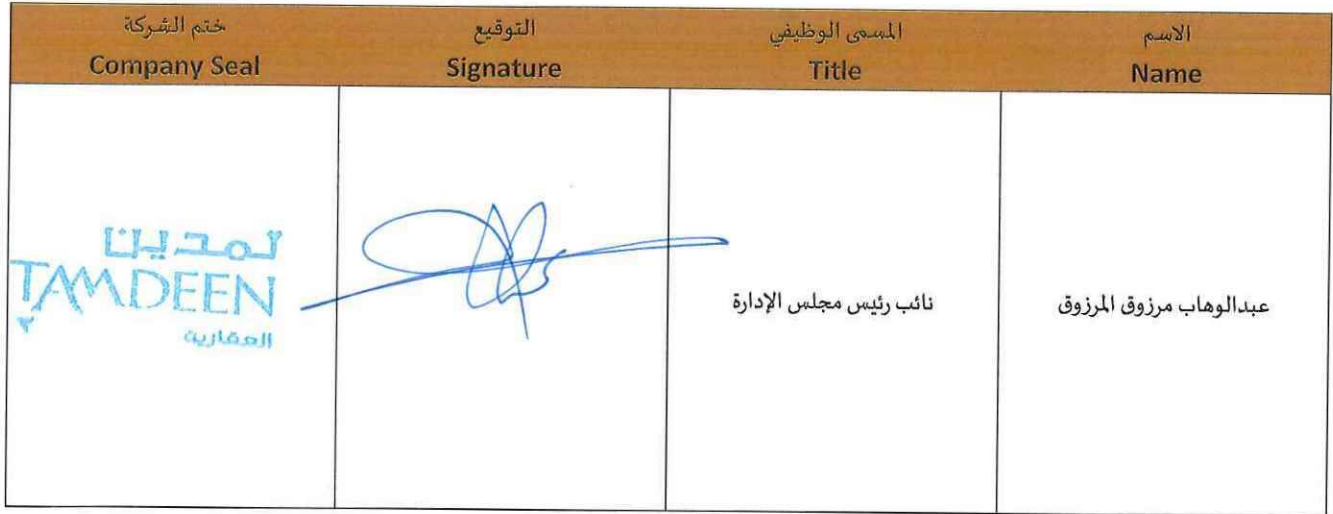 الاسم
Name
المسمى الوظيفي
Title
التوقيع
Signature
ختم الشركة
Company Seal
عبدالوهاب مرزوق المرزوق
نائب رئيس مجلس الإدارة
تمدين
TAMDEEN
العقارية